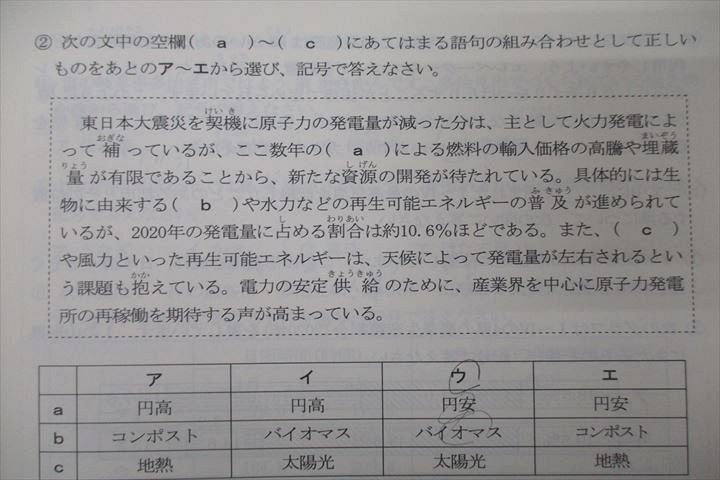 ② 次の文中の空欄( a )~( c )にあてはまる語句の組み合わせとして正しい
ものをあとのア~エから選び、記号で答えなさい。
東日本大震災を契機に原子力の発電量が減った分は、主として火力発電によ
って補っているが、ここ数年の( a )による燃料の輸入価格の高騰や埋蔵
量が有限であることから、新たな資源の開発が待たれている。具体的には生
物に由来する( b )や水力などの再生可能エネルギーの普及が進められて
いるが、2020年の発電量に占める割合は約10.6%ほどである。また、( c )
や風力といった再生可能エネルギーは、天候によって発電量が左右されるとい
う課題も抱えている。電力の安定供給のために、産業界を中心に原子力発電
所の再稼働を期待する声が高まっている。
ア イ ウ エ
a 円高 円高 円安 円安
b コンポスト バイオマス バイオマス コンポスト
c 地熱 太陽光 太陽光 地熱